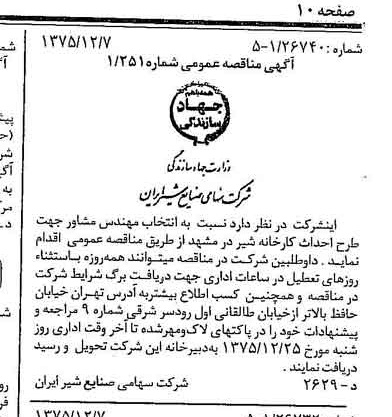 صفحه ۱۰
شماره: ۵-۱/۲۶۷۴۰ ۱۳۷۵/۱۲/۷
آگهی مناقصه عمومی شماره ۱/۲۵۱
همه باهم
جهاد
سازندگی
وزارت جهاد سازندگی
شرکت سهامی صنایع شیر ایران
اینشرکت در نظر دارد نسبت به انتخاب مهندس مشاور جهت
طرح احداث کارخانه شیر در مشهد از طریق مناقصه عمومی اقدام
نماید. داوطلبین شرکت در مناقصه میتوانند همه‌روزه باستثناء
روزهای تعطیل در ساعات اداری جهت دریافت برگ شرایط شرکت
در مناقصه و همچنین کسب اطلاع بیشتربه آدرس تهران خیابان
حافظ بالاتر ازخیابان طالقانی اول رودسر شرقی شماره ۹ مراجعه و
پیشنهادات خود را در پاکتهای لاک‌ومهرشده تا آخر وقت اداری روز
شنبه مورخ ۱۳۷۵/۱۲/۲۵ به‌دبیرخانه این شرکت تحویل و رسید
دریافت نمایند.
د-۲۶۲۹ شرکت سهامی صنایع شیر ایران